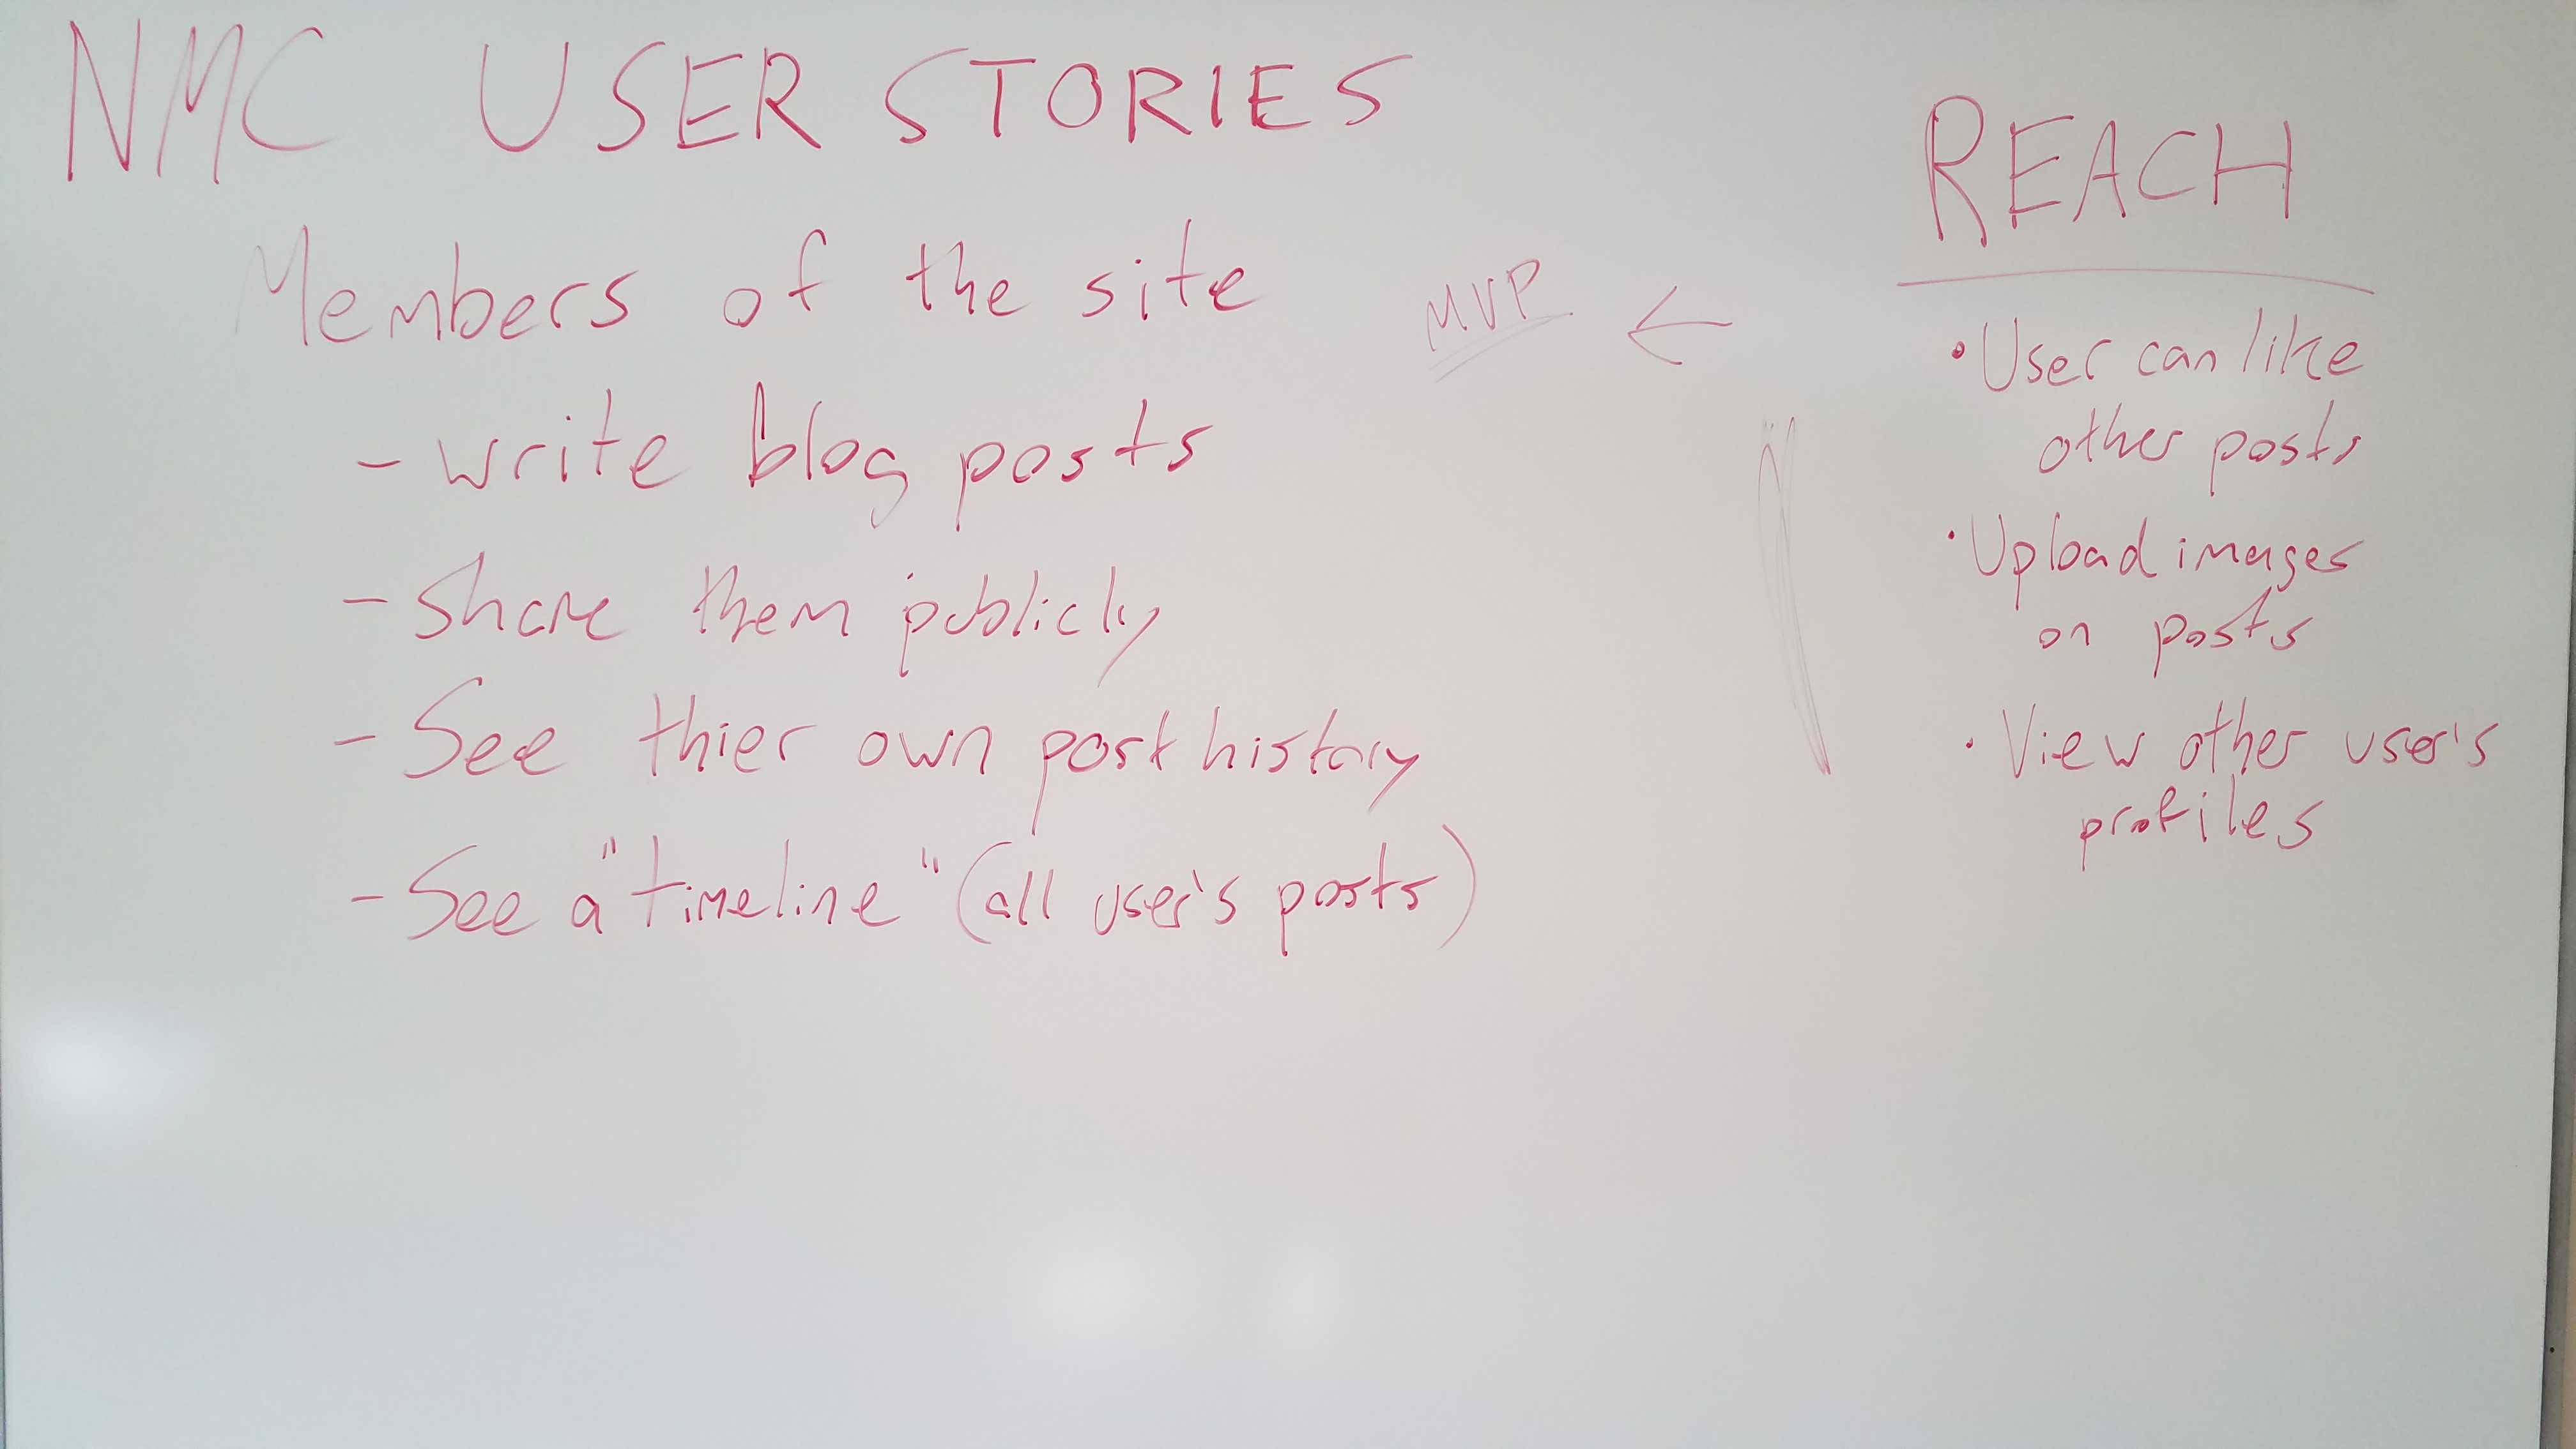 NMC USER STORIES
Members of the site
- write blog posts
- Share them publicly
- See thier own post history
- See a "timeline" (all user's posts)
MVP ←
REACH
• User can like
other posts
• Upload images
on posts
• View other user's
profiles